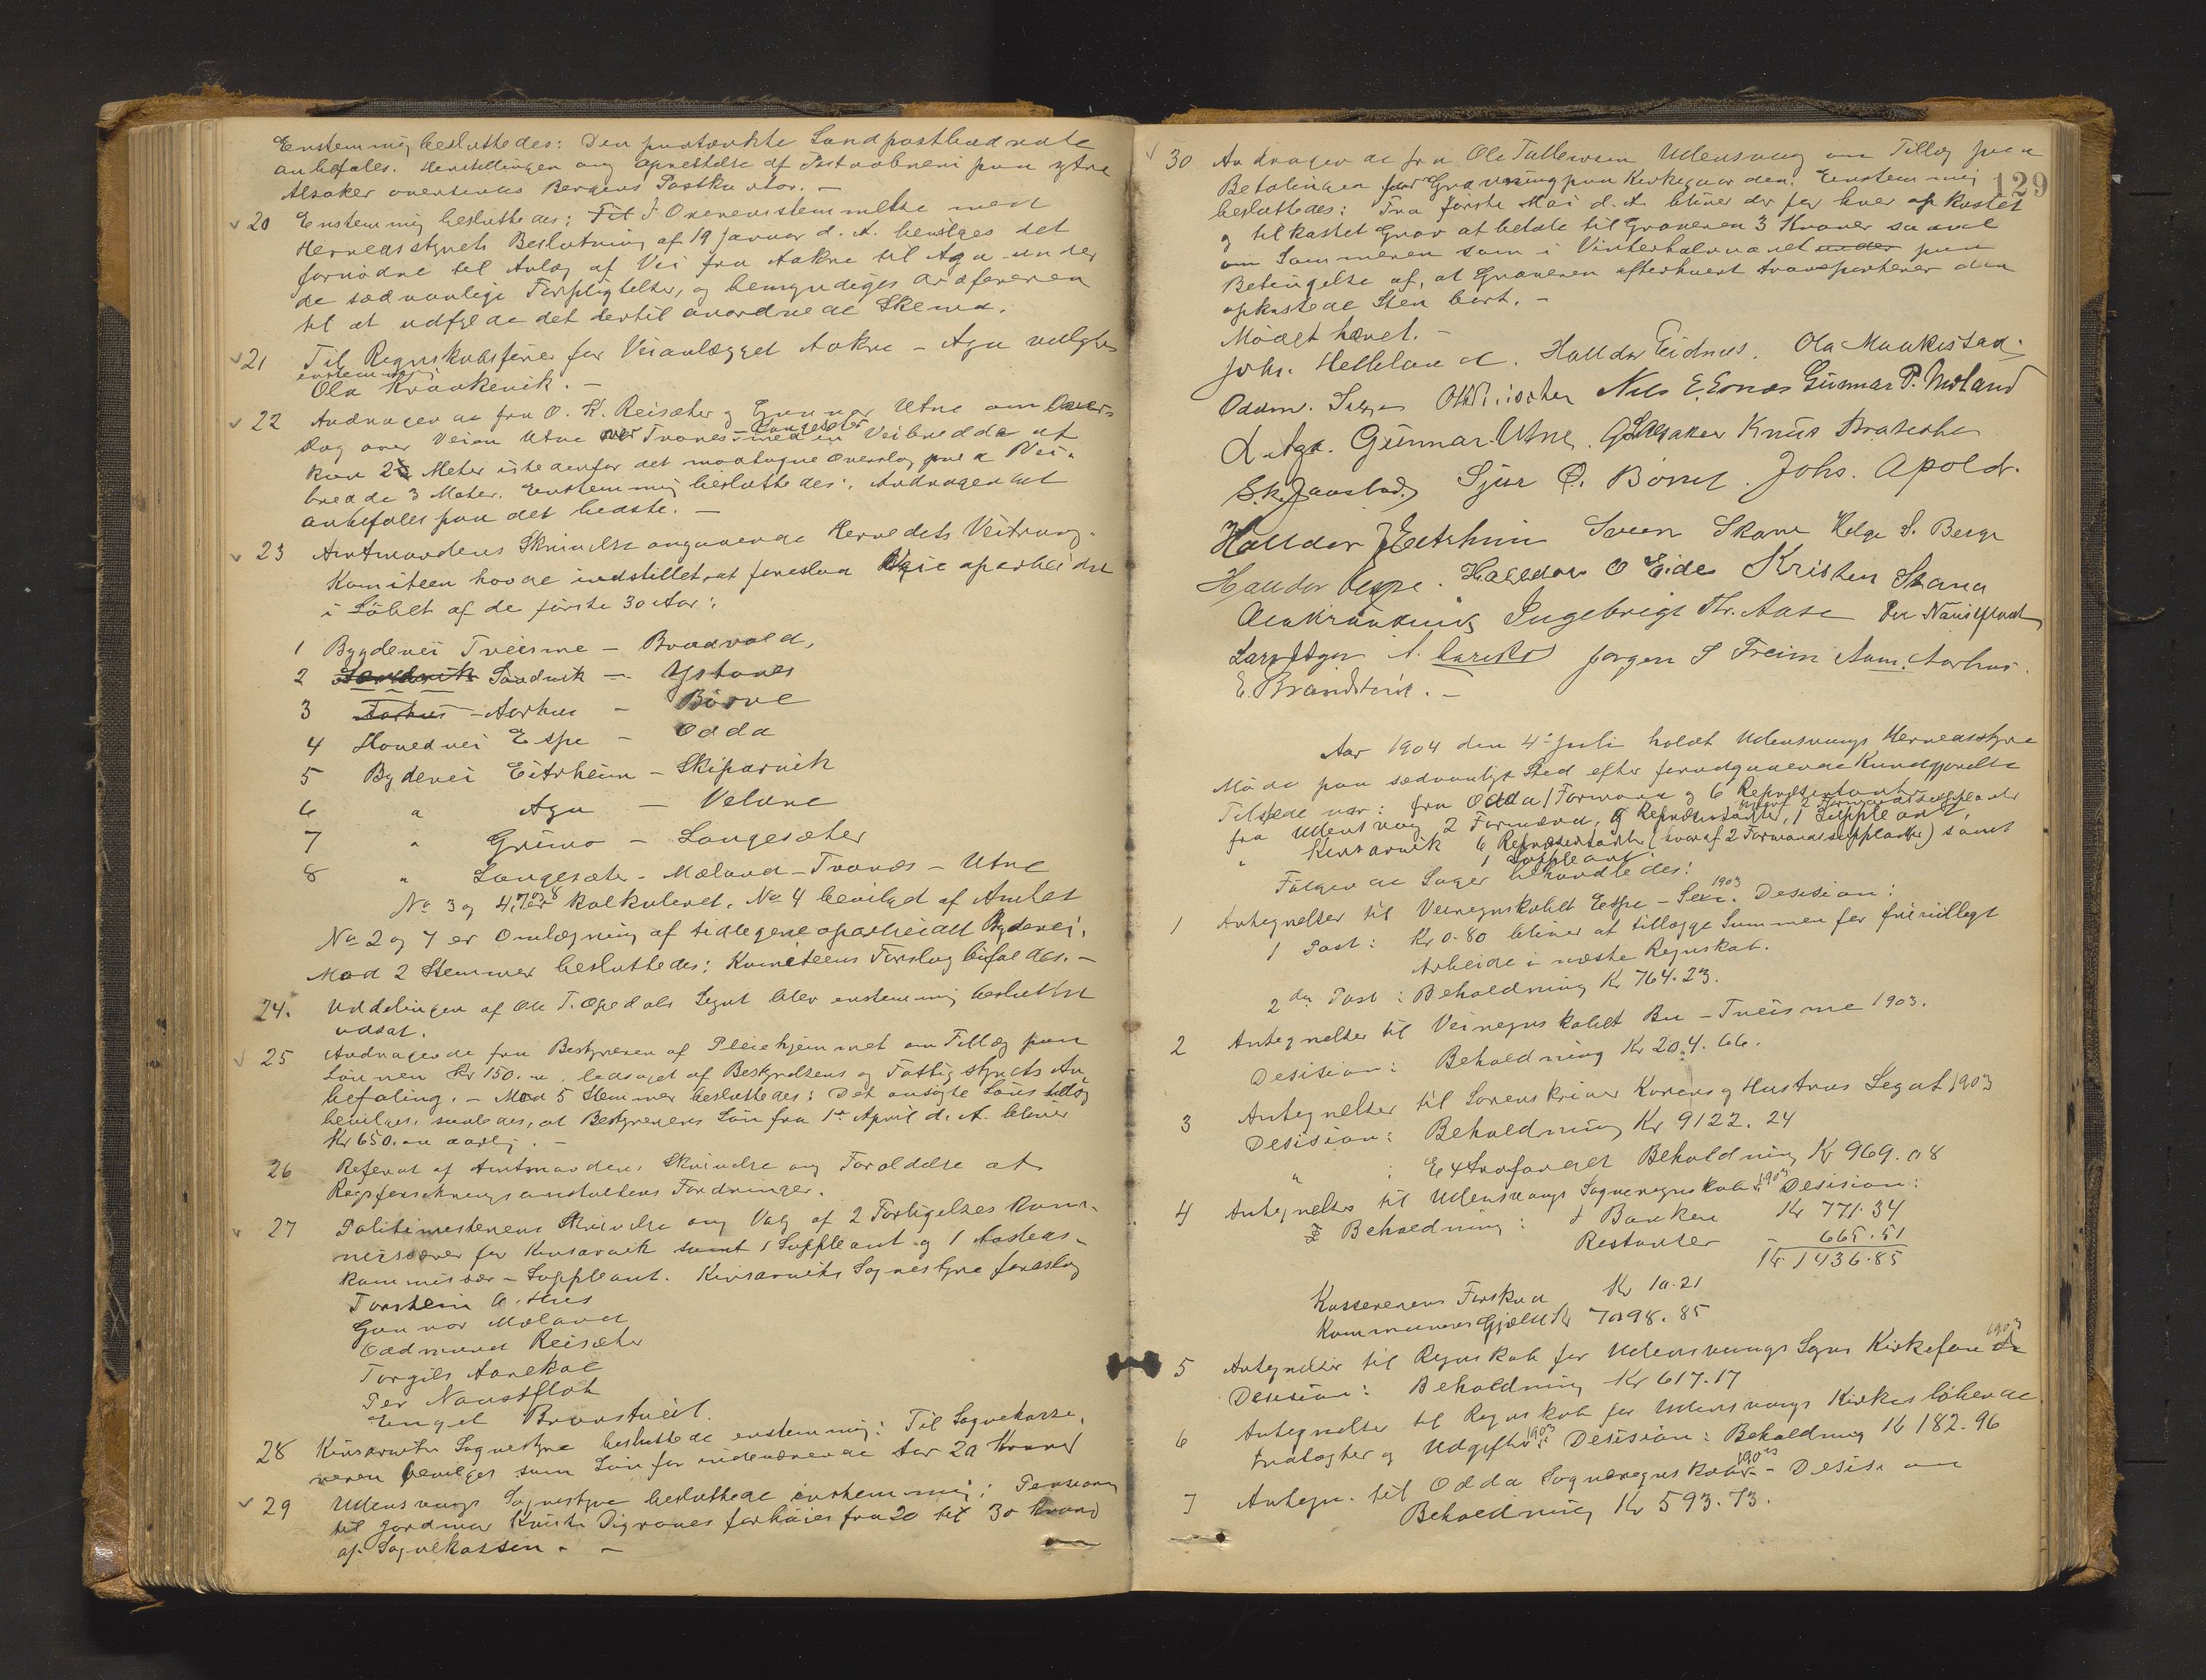 Enstemmig besluttedes: Den paatænkte Landpostbudrute
anbefales. Henstillingen ang oprettelse af Postaabneri paa ytre
Alsaker oversendes Bergens Postkontor. —
20 Enstemmig besluttedes: I Overensstemmelse med
Herredsstyrets Beslutning af 19 Januar d. A. bevilges det
fornødne til Anlæg af Vei fra Aakre til Aga under
de sædvanlige Forpligtelser, og bemyndiges Ordføreren
til at udfylde det dertil anordnede Skema.
21 Til Regnskabsfører for Veianlægget Aakre – Aga valgtes
enstemmig
Ola Kraakevik. —
22 Andragende fra O. K. Reisæter og Gunnar Utne om Over-
slag over Veien Utne – Tronæs – Langesæter med en Veibredde af
kun 2½ Meter istedenfor det modtagne Overslag paa Vei-
bredde 3 Meter. Enstemmig besluttedes: Andragendet
anbefales paa det bedste. —
23 Amtmandens Skrivelse angaaende Herredets Veitrang.
Komiteen havde indstillet at foreslaa Veie oparbeidet
i Løbet af de første 30 Aar:
1 Bygdevei Tveisme – Braavold,
2 Sandvik – Ystanes
3 Aarhus – Aarhus – Børve
4 Hovedvei Espe – Odda
5 Bygdevei Eitrheim – Skiparvik
6 " Aga – Velure
7 " Grimo – Langesæter
8 " Langesæter – Mæland – Tronæs – Utne
No 3 og 4, 7 og 8 er kalkuleret. No 4 bevilget af Amtet
No 2 og 7 er Omlægning af tidligere oparbeidet Bygdevei.
Mod 2 Stemmer besluttedes: Komiteens Forslag bifaldes. —
24. Uddelingen af Ole T. Opedals Legat blev enstemmig besluttet
udsat.
25 Andragende fra Bestyreren af Pleiehjemmet om Tillæg paa
Lønnen Kr 150.00, ledsaget af Bestyrelsens og Fattigstyrets An-
befaling. – Mod 5 Stemmer besluttedes: Det ansøgte Lønstillæg
bevilges, saaledes, at Bestyrerens Løn fra 1ste April d. A. bliver
Kr 650.00 aarlig. —
26 Referat af Amtmandens Skrivelse ang Foreldelse af
Rigsforsikringsanstaltens Fordringer.
27 Politimesterens Skrivelse ang Valg af 2 Forligelses Kom-
missærer for Kinsarvik samt 1 Suppleant og 1
kommissær – Suppleant. Kinsarviks Sognestyre foreslog
Torstein O. Hus
Gunnar Mæland
Oddmund Reisæter
Torgils Aarekol
Per Naustflot
Engel Bronstveit.
28 Kinsarviks Sognestyre besluttede enstemmig: Til Sognekasse-
reren bevilges som Løn for indeværende Aar 20 Kroner
29 Udensvangs Sognestyre besluttede enstemmig: Pensionen
til Jordmor Kristi Digranes forhøies fra 20 til 30 Kroner
af Sognekassen. —
129
30 Andragende fra Ole Tallevsen Udensvang om Tillæg paa
Betalingen for Gravning paa Kirkegaarden. Enstemmig
besluttedes: Fra første Mai d. A. bliver der for hver opkastet
og tilkastet Grav at betale til Graveren 3 Kroner saavel
om Sommeren som i Vinterhalvaaret under paa
Betingelse af, at Graveren efterhvert transporterer den
opkastede Sten bort. —
Mødet hævet. —
Johs. Helleland. Halldor Eidnes. Ola Maakestad.
Oddm. O K Reisæter Nils E. Ernes Gunnar P. Møland
L. Aga. Gunnar Utne. G. Alsaker Knut Bratebø
S. K. Jaastad. Sjur O. Børve. Johs. Apold.
Halldor J Eitrheim Sveen Skare Helge S. Berge
Halldor Espe. Halldor O Eide Kristen Stana
Ola Kraakevik Ingebrigt Thr. Aase Per Naustflaat
Lars J Aga Jørgen S Freim Aam. Aarhus.
E. Braastveit. —
Aar 1904 den 4de Juli holdt Udensvangs Herredsstyre
Møde paa sædvanligt Sted efter forudgaaende Kundgjørelse
Tilstede var: fra Odda 1 Formand og 6 Repræsentanter
hvoraf 2 Formandssuppleanter
fra Udensvang 2 Formænd, 9 Repræsentanter, 1 Suppleant,
" Kinsarvik 6 Repræsentanter (hvoraf 2 Formandssuppleanter) samt
1 Suppleant
Følgende Sager behandledes:
1 Antegnelser til Veiregnskabet Espe – Sexe 1903. Desision:
1 Post: Kr 0.80 bliver at tillægge Summen for frivilligt
Arbeide i næste Regnskab.
2den Post: Beholdning Kr 764.23.
2 Antegnelser til Veiregnskabet Bu – Tveisme 1903.
Desision: Beholdning Kr 204.66.
3 Antegnelser til Sorenskriver Korens og Hustrus Legat 1903
Desision: Beholdning Kr 9122.24
" : Extrafondet Beholdning Kr 969.08
4 Antegnelser til Udensvangs Sogneregnskab 1903 Desision:
Beholdning: I Banken Kr 771.34
Restanter - 665.51
Kr 1436.85
Kassererens Forskud Kr 10.21
Kommunens Gjæld Kr 7098.85
5 Antegnelser til Regnskab for Udensvangs Sogns Kirkefond 1903
Desision: Beholdning Kr 617.17
6 Antegnelser til Regnskab for Udensvangs Kirkes løbende
Indtægter og Udgifter 1903 Desision: Beholdning Kr 182.96
7 Antegn. til Odda Sogneregnskab 1903 – Desision
Beholdning Kr 593.73.